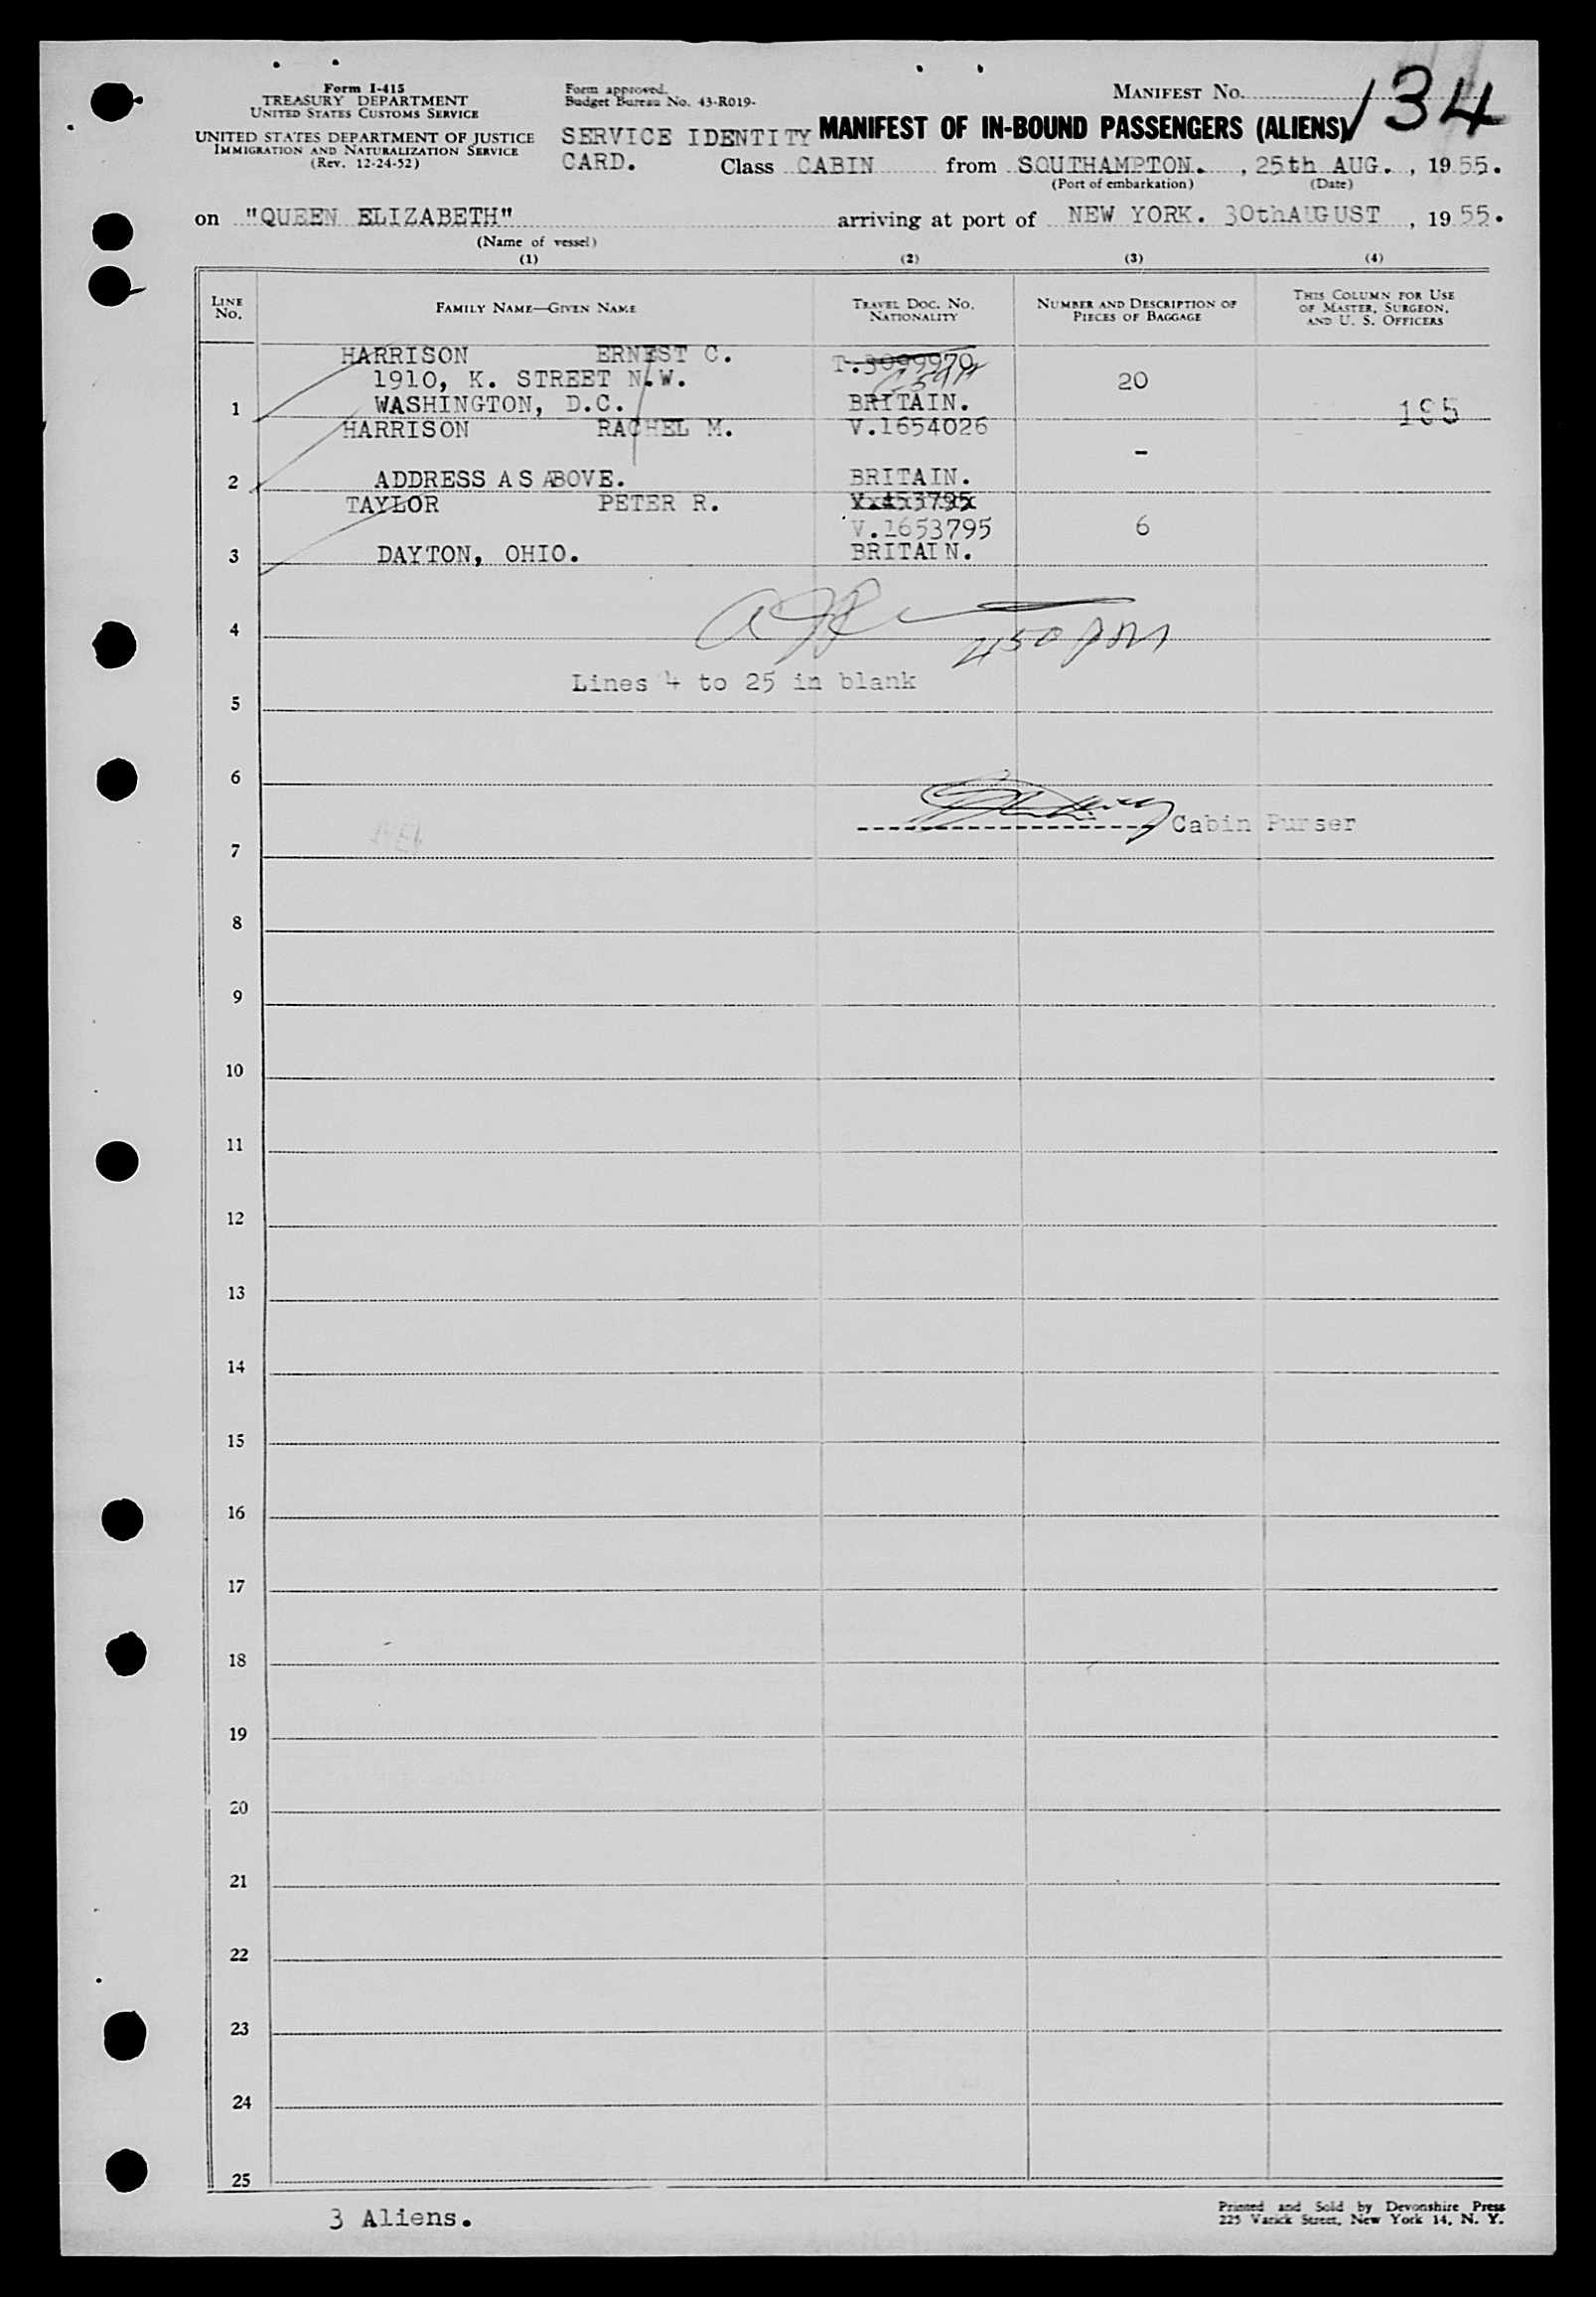 Form I-415
TREASURY DEPARTMENT
UNITED STATES CUSTOMS SERVICE
UNITED STATES DEPARTMENT OF JUSTICE
IMMIGRATION AND NATURALIZATION SERVICE
(Rev. 12-24-52)
Form approved.
Budget Bureau No. 43-R019-
SERVICE IDENTITY
CARD.
MANIFEST No. 134
MANIFEST OF IN-BOUND PASSENGERS (ALIENS)
Class CABIN from SOUTHAMPTON. , 25th AUG. , 19 55.
(Port of embarkation) (Date)
on "QUEEN ELIZABETH" arriving at port of NEW YORK. 30thAUGUST , 19 55.
(Name of vessel)
(1) (2) (3) (4)
LINE No. FAMILY NAME—GIVEN NAME TRAVEL DOC. NO. NATIONALITY NUMBER AND DESCRIPTION OF PIECES OF BAGGAGE THIS COLUMN FOR USE OF MASTER, SURGEON, AND U. S. OFFICERS
HARRISON ERNEST C. T.3099970
1910, K. STREET N.W. 20
1 WASHINGTON, D.C. BRITAIN. 195
HARRISON RACHEL M. V.1654026
-
2 ADDRESS AS ABOVE. BRITAIN.
TAYLOR PETER R.
V.1653795 6
3 DAYTON, OHIO. BRITAIN.
4 450 pm
Lines 4 to 25 in blank
5
6
Cabin Purser
7
8
9
10
11
12
13
14
15
16
17
18
19
20
21
22
23
24
25
3 Aliens.
Printed and Sold by Devonshire Press
225 Varick Street, New York 14, N. Y.